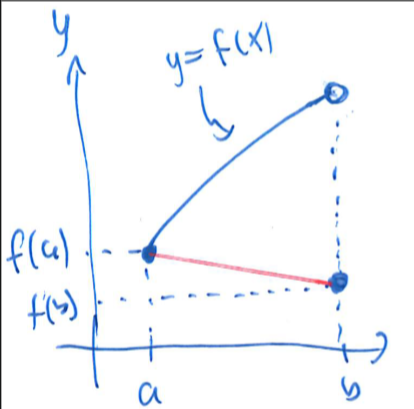 y
y=f(x)
f(a)
f(b)
a
b